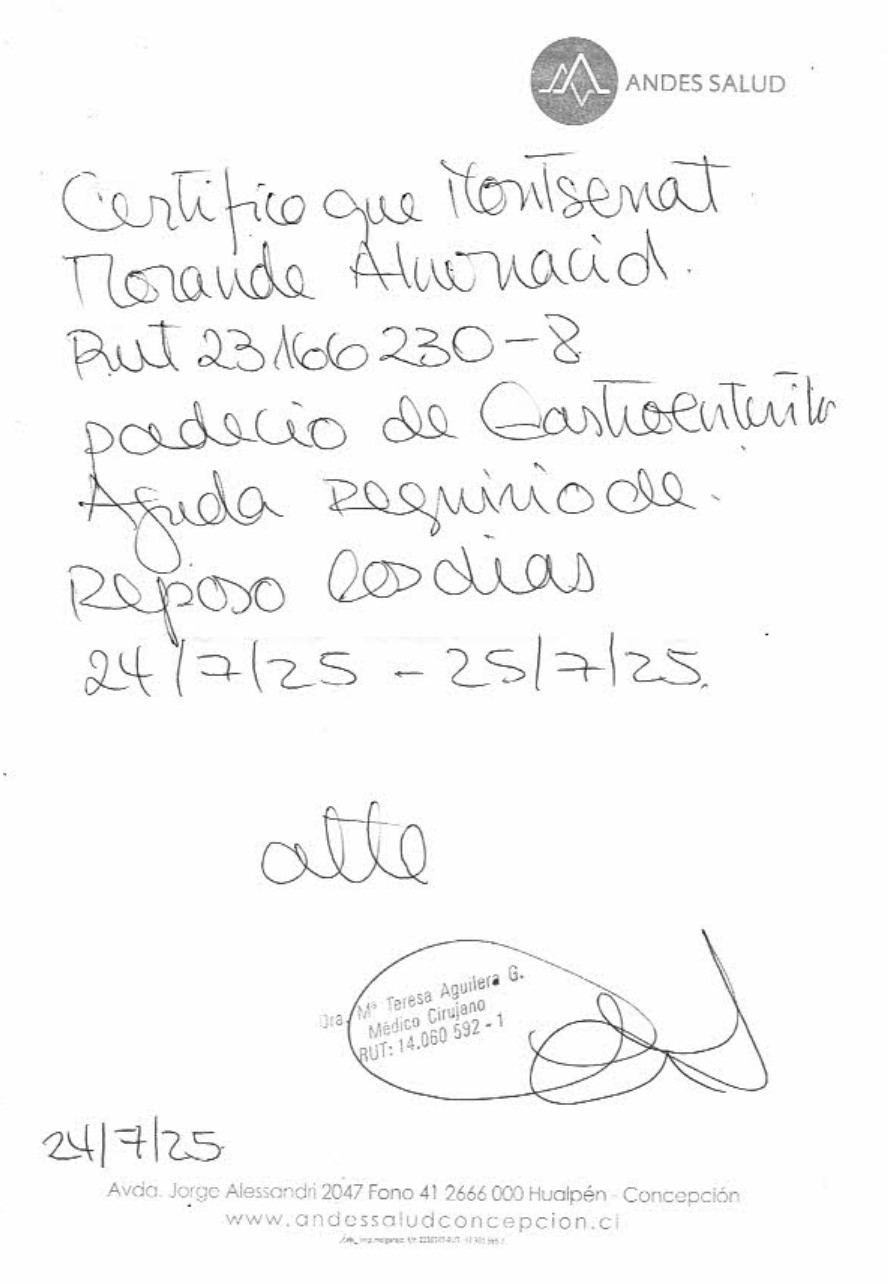 ANDES SALUD
Certifico que Montserrat
Morande Almonacid.
Rut 23166230-8
padecio de Gastroenteritis
Aguda requirio de.
Reposo los dias
24/7/25 - 25/7/25.
atte
Dra. Mª Teresa Aguilera G.
Médico Cirujano
RUT: 14.060 592 - 1
24/7/25
Avda. Jorge Alessandri 2047 Fono 41 2666 000 Hualpén - Concepción
www.andessaludconcepcion.cl